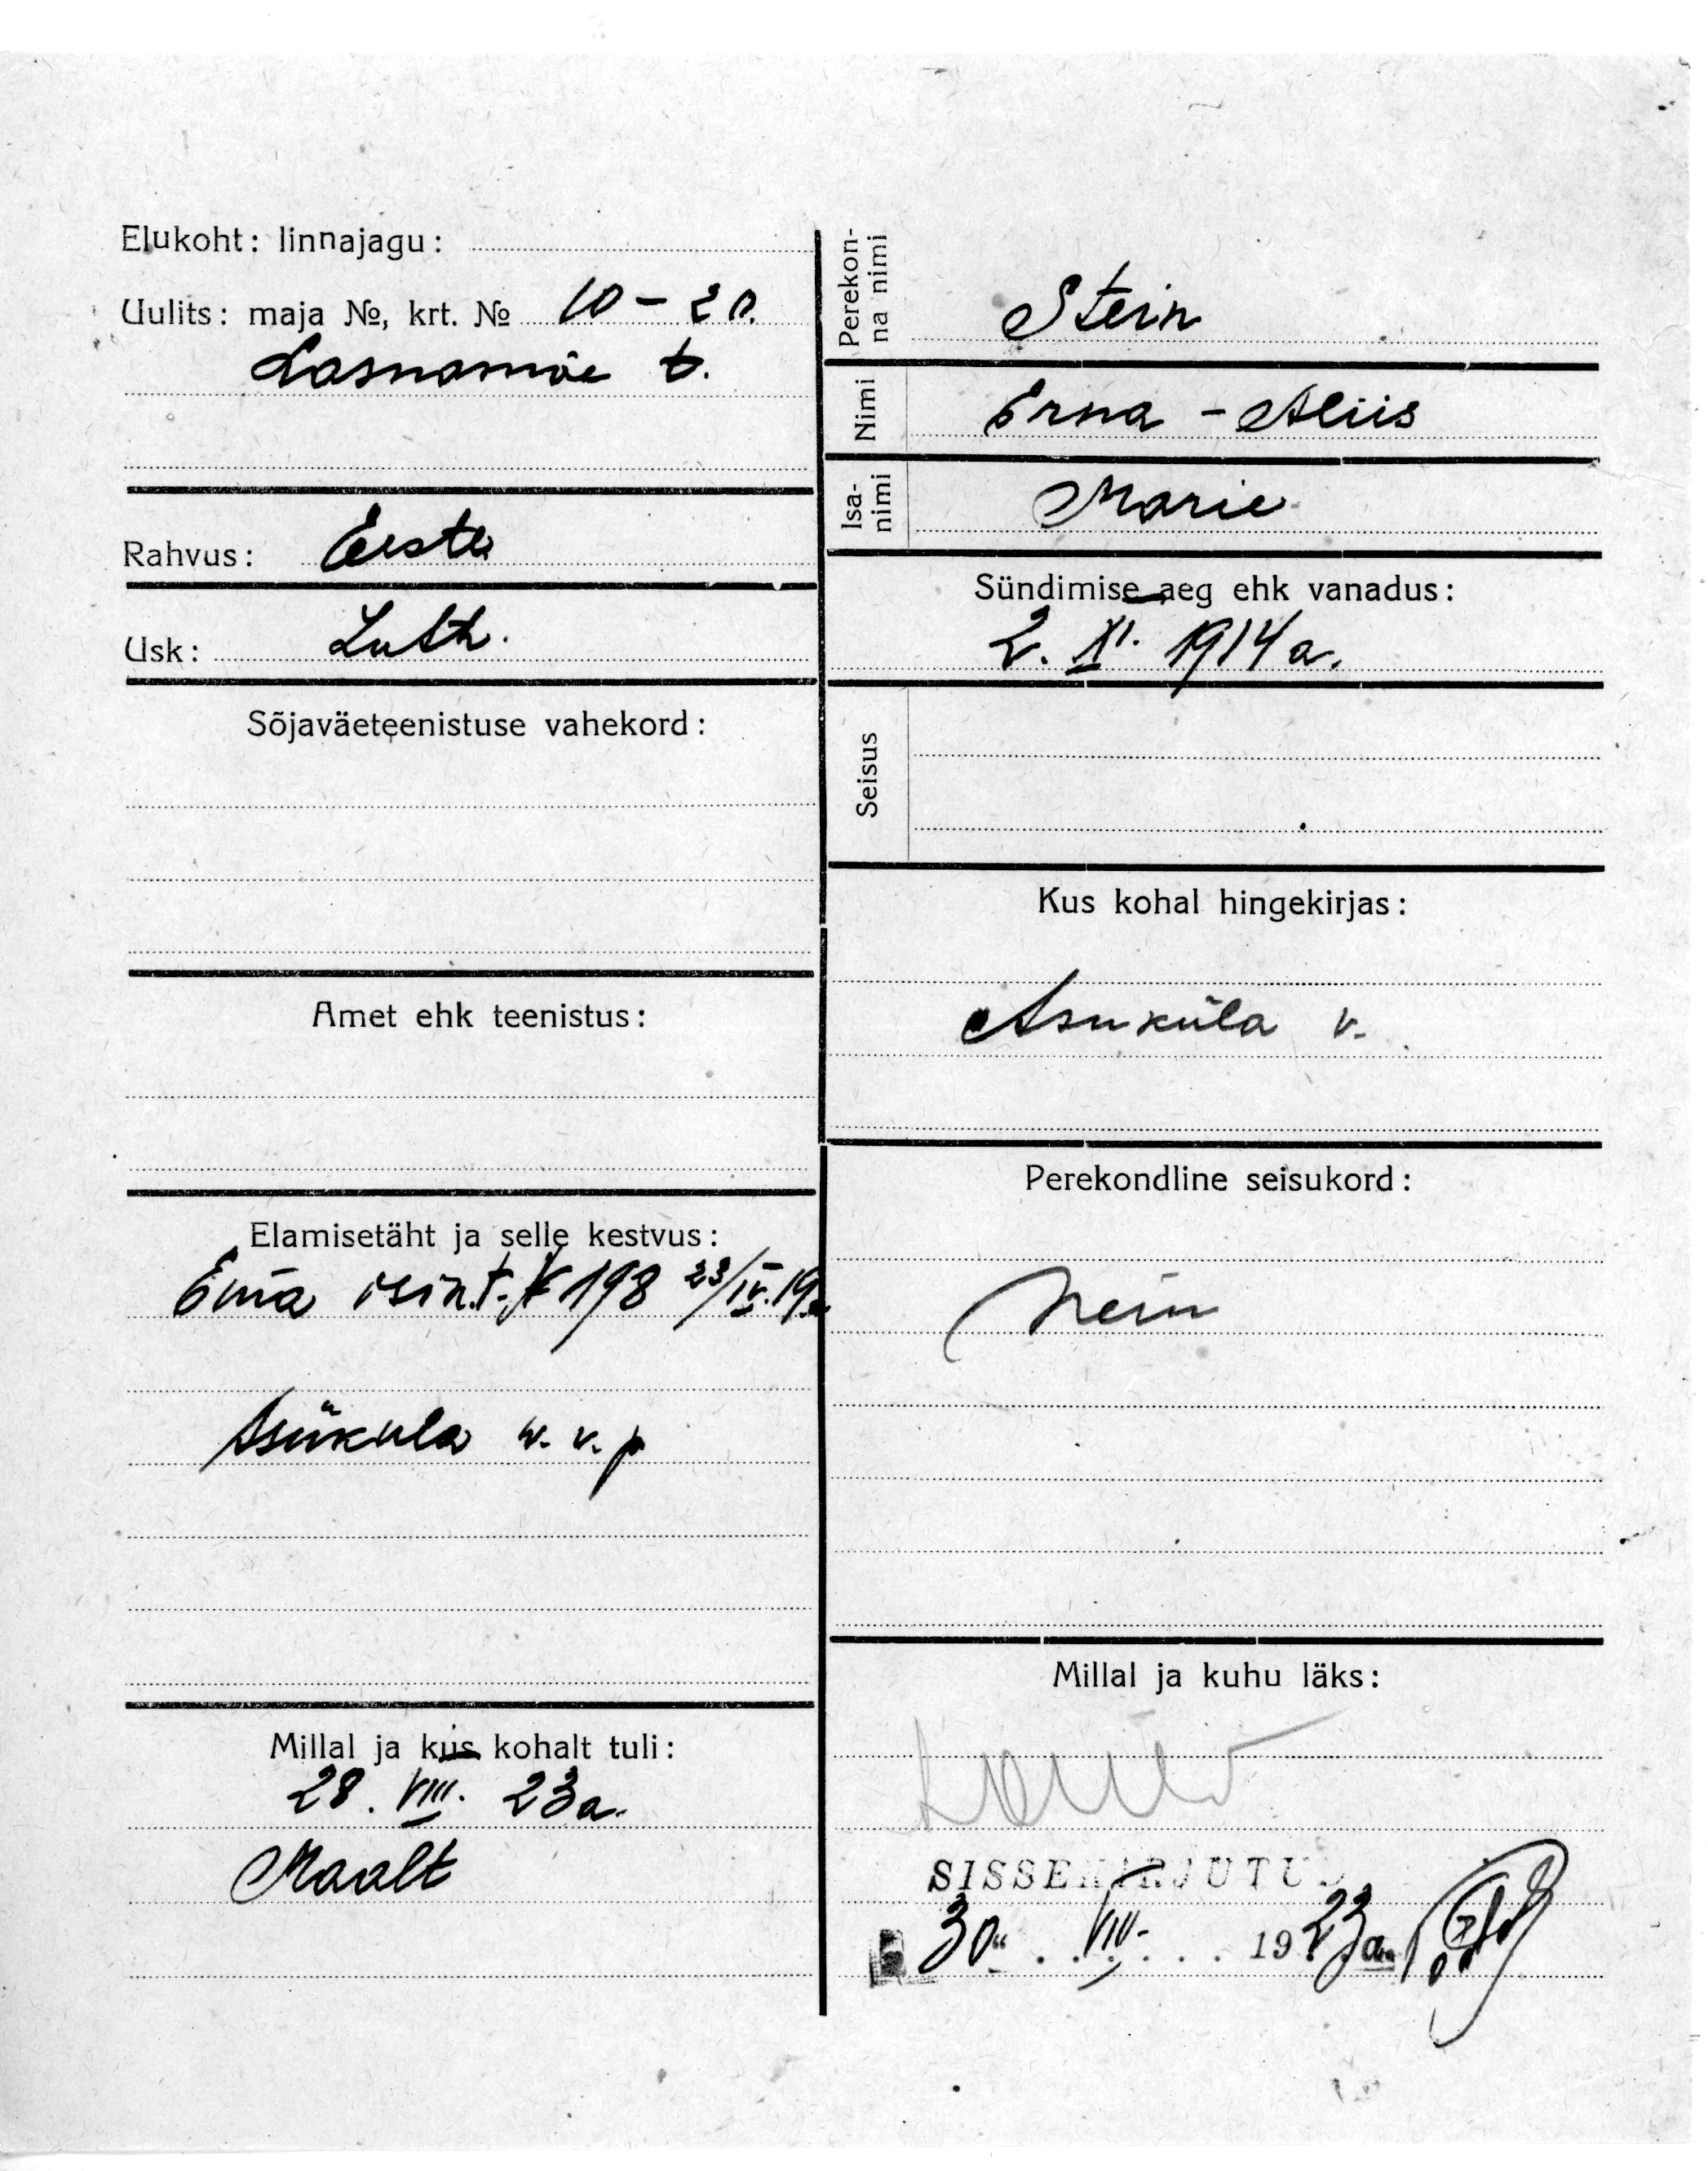 Elukoht: linnajagu:
Uulits: maja №, krt. № 10 – 20.
Lasnamäe t.
Rahvus: Eesti
Usk: Luth.
Sõjaväeteenistuse vahekord:
Amet ehk teenistus:
Elamisetäht ja selle kestvus:
Ema isin.t. № 198 23/IV.19
Asuküla w. v. p
Millal ja kus kohalt tuli:
28. VIII. 23a.
Maalt
Perekon-
na nimi
Stein
Nimi Erna - Aliis
Isa-
nimi
Marie
Sündimise aeg ehk vanadus:
2. XI. 1914 a.
Seisus
Kus kohal hingekirjas:
Asuküla v.
Perekondline seisukord:
Millal ja kuhu läks:
SISSEKIRJUTUD
30" VIII. 1923a.